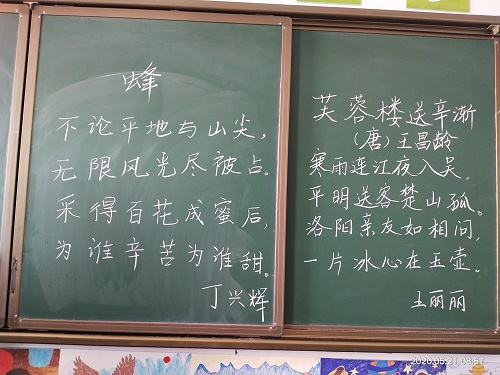 蜂
不论平地与山尖，
无限风光尽被占。
采得百花成蜜后，
为谁辛苦为谁甜。
丁兴辉
芙蓉楼送辛渐
（唐）王昌龄
寒雨连江夜入吴，
平明送客楚山孤。
洛阳亲友如相问，
一片冰心在玉壶。
王丽丽
2020.05.21 08:57